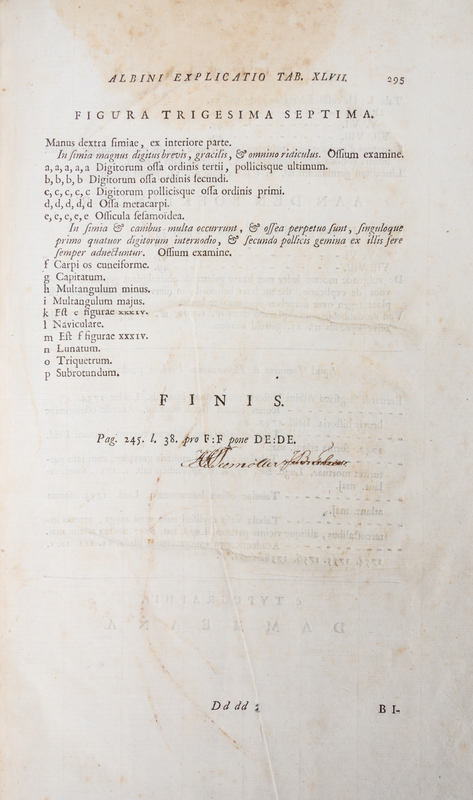 ALBINI EXPLICATIO TAB. XLVII. 295
FIGURA TRIGESIMA SEPTIMA.
Manus dextra ſimiae, ex interiore parte.
In ſimia magnus digitus brevis, gracilis, & omnino ridiculus. Oſſium examine.
a, a, a, a, a Digitorum oſſa ordinis tertii, pollicisque ultimum.
b, b, b, b Digitorum oſſa ordinis ſecundi.
c, c, c, c, c Digitorum pollicisque oſſa ordinis primi.
d, d, d, d, d Oſſa metacarpi.
e, e, e, e, e Oſſicula ſeſamoidea.
In ſimia & canibus multa occurrunt, & oſſea perpetuo ſunt, ſinguloque
primo quatuor digitorum internodio, & ſecundo pollicis gemina ex illis fere
ſemper adnectuntur. Oſſium examine.
f Carpi os cuneiforme.
g Capitatum.
h Multangulum minus.
i Multangulum majus.
k Eſt e figurae XXXIV.
l Naviculare.
m Eſt f figurae XXXIV.
n Lunatum.
o Triquetrum.
p Subrotundum.
FINIS.
Pag. 245. l. 38. pro F:F pone DE:DE.
Dd dd 2 BI-